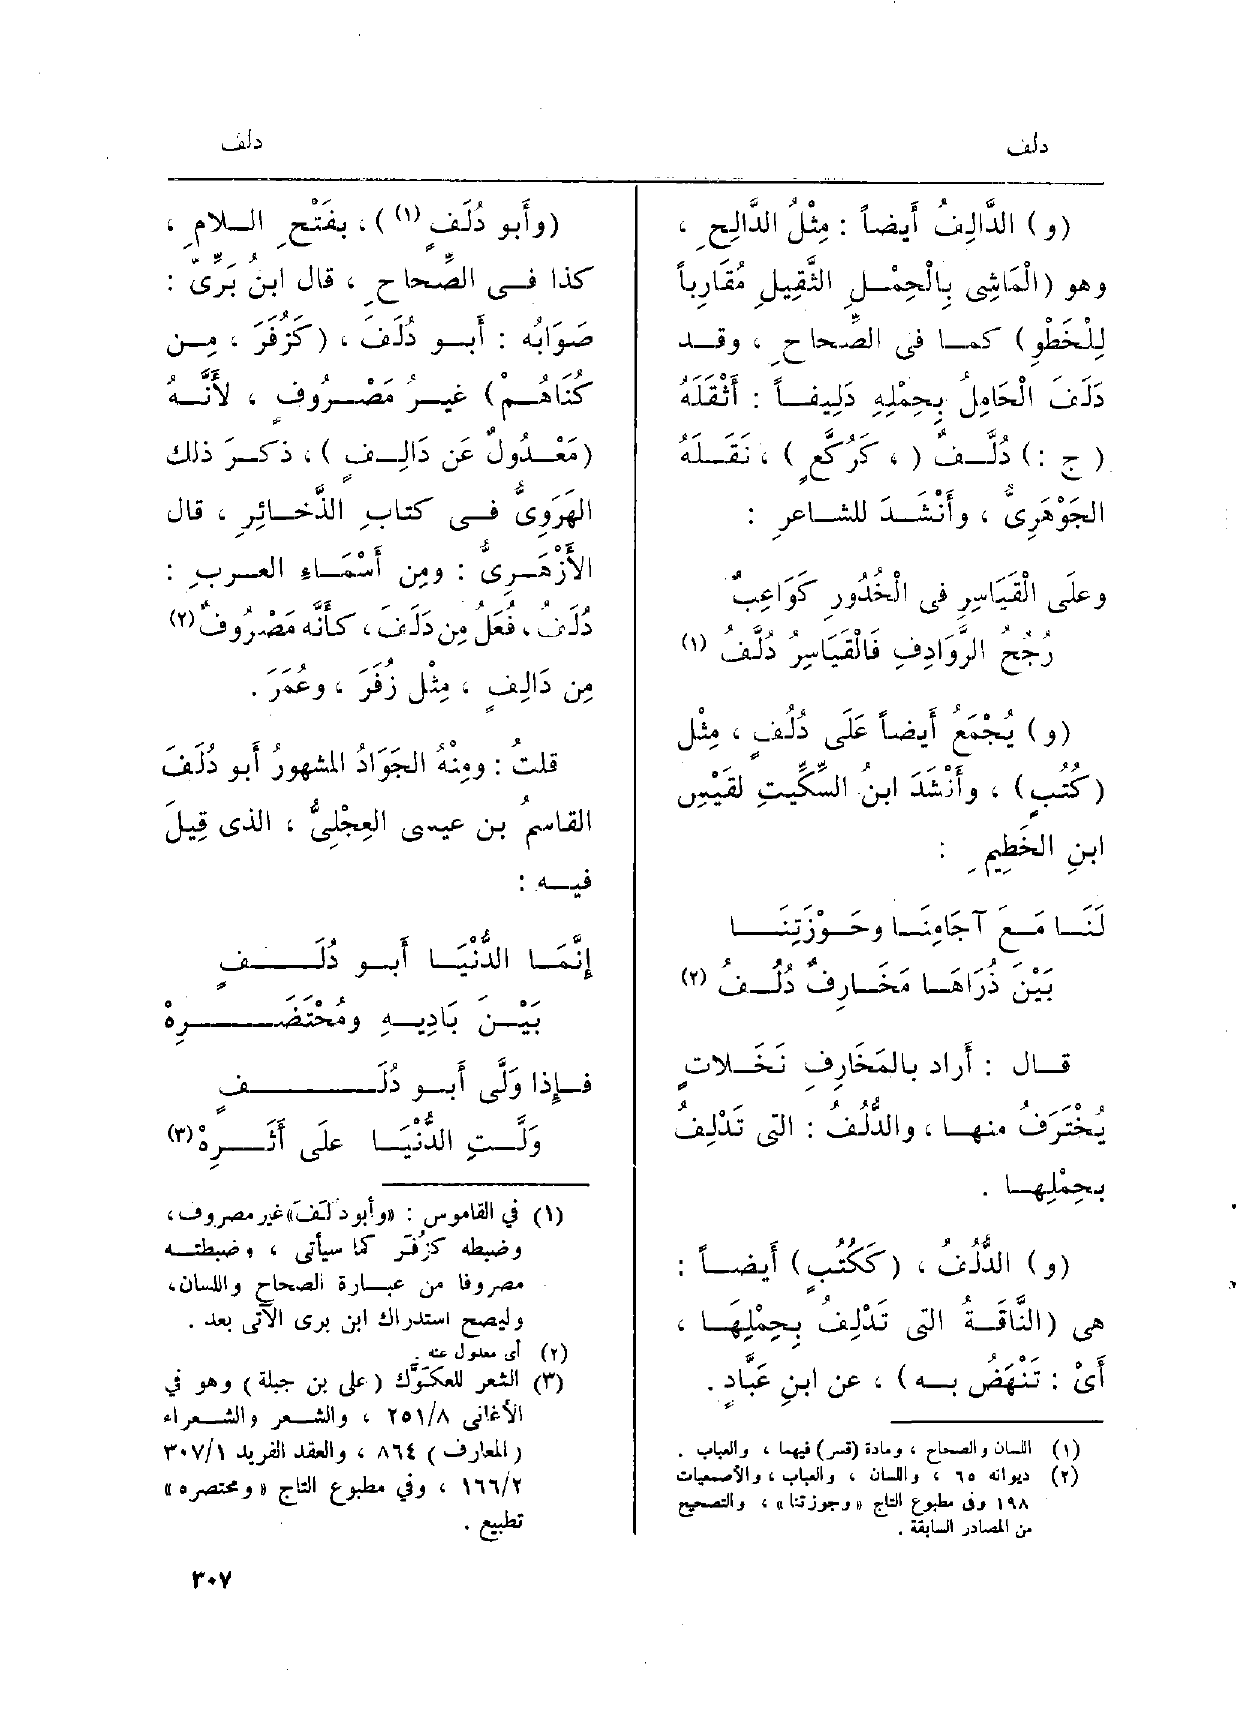 دلف
دلف
(و) الدَّالِفُ أيضاً : مِثْلُ الدَّالِحِ ،
وهو (الْمَاشِى بِالْحِمْلِ الثَّقِيلِ مُقَارِباً
لِلْخَطْوِ) كما فى الصِّحاحِ ، وقد
دَلَفَ الْحَامِلُ بِحِمْلِهِ دَلِيفاً : أَثْقَلَهُ
(ج :) دُلَّفٌ (، كَرُكَّعٍ) ، نَقَلَهُ
الجَوْهَرِىُّ ، وأَنْشَدَ للشاعرِ :
وعلَى الْقَيَاسِرِ فى الْخُدُورِ كَوَاعِبٌ
رُجُحُ الرَّوَادِفِ فَالْقَيَاسِرُ دُلَّفُ (١)
(و) يُجْمَعُ أيضاً عَلَى دُلُفٍ ، مِثْلِ
(كُتُبٍ) ، وأَنْشَدَ ابنُ السِّكِّيتِ لقَيْسِ
ابنِ الخَطِيمِ :
لَنَا مَعَ آجَامِنَا وحَوْزَتِنَا
بَيْنَ ذُرَاهَا مَخَارِفٌ دُلُفُ (٢)
قال : أَراد بالمَخَارِفِ نَخَلاتٍ
يُخْتَرَفُ منها ، والدُّلُفُ : التى تَدْلِفُ
بحِمْلِها .
(و) الدُّلُفُ ، (كَكُتُبٍ) أيضاً :
هى (النَّاقَةُ التى تَدْلِفُ بِحِمْلِهَا ،
أَىْ : تَنْهَضُ به) ، عن ابنِ عَبَّادٍ .
(١) اللسان والصحاح ، ومادة (قسر) فيهما ، والعباب .
(٢) ديوانه ٦٥ ، واللسان ، والعباب ، والأصمعيات
١٩٨ وفى مطبوع التاج « وجوزتنا » ، والتصحيح
من المصادر السابقة .
(وأَبو دُلَفٍ (١) ) ، بفَتْحِ اللامِ ،
كذا فى الصِّحاحِ ، قال ابنُ بَرِّىٍّ :
صَوَابُه : أَبو دُلَفَ ، (كَزُفَرَ ، مِن
كُنَاهُمْ) غيرُ مَصْرُوفٍ ، لأَنَّهُ
(مَعْدُولٌ عَن دَالِفٍ) ، ذكرَ ذلك
الهَرَوِىُّ فى كتابِ الذَّخائِرِ ، قال
الأَزْهَرِىُّ : ومِن أَسْمَاءِ العربِ :
دُلَفُ ، فُعَلُ مِن دَلَفَ ، كأَنَّه مَصْرُوفٌ(٢)
مِن دَالِفٍ ، مِثْل زُفَرَ ، وعُمَرَ .
قلتُ : ومِنْهُ الجَوَادُ المشهورُ أَبو دُلَفَ
القاسمُ بن عيسى العِجْلِىُّ ، الذى قِيلَ
فيه :
إِنَّمَا الدُّنْيَا أَبو دُلَفٍ
بَيْنَ بَادِيهِ ومُحْتَضَرِهْ
فإذا وَلَّى أَبو دُلَفٍ
وَلَّتِ الدُّنْيَا على أَثَرِهْ(٣)
(١) في القاموس : «وأبو دلَفَ» غير مصروف ،
وضبطه كزُفَر كما سيأتى ، وضبطته
مصروفا من عبارة الصحاح واللسان،
وليصح استدراك ابن برى الآتى بعد .
(٢) أى معدول عنه .
(٣) الشعر للعكَوَّك (على بن جبلة) وهو في
الأغانى ٢٥١/٨ ، والشعر والشعراء
(المعارف) ٨٦٤ ، والعقد الفريد ٣٠٧/١
١٦٦/٢ ، وفي مطبوع التاج « ومختصره »
تطبيع .
٣٠٧